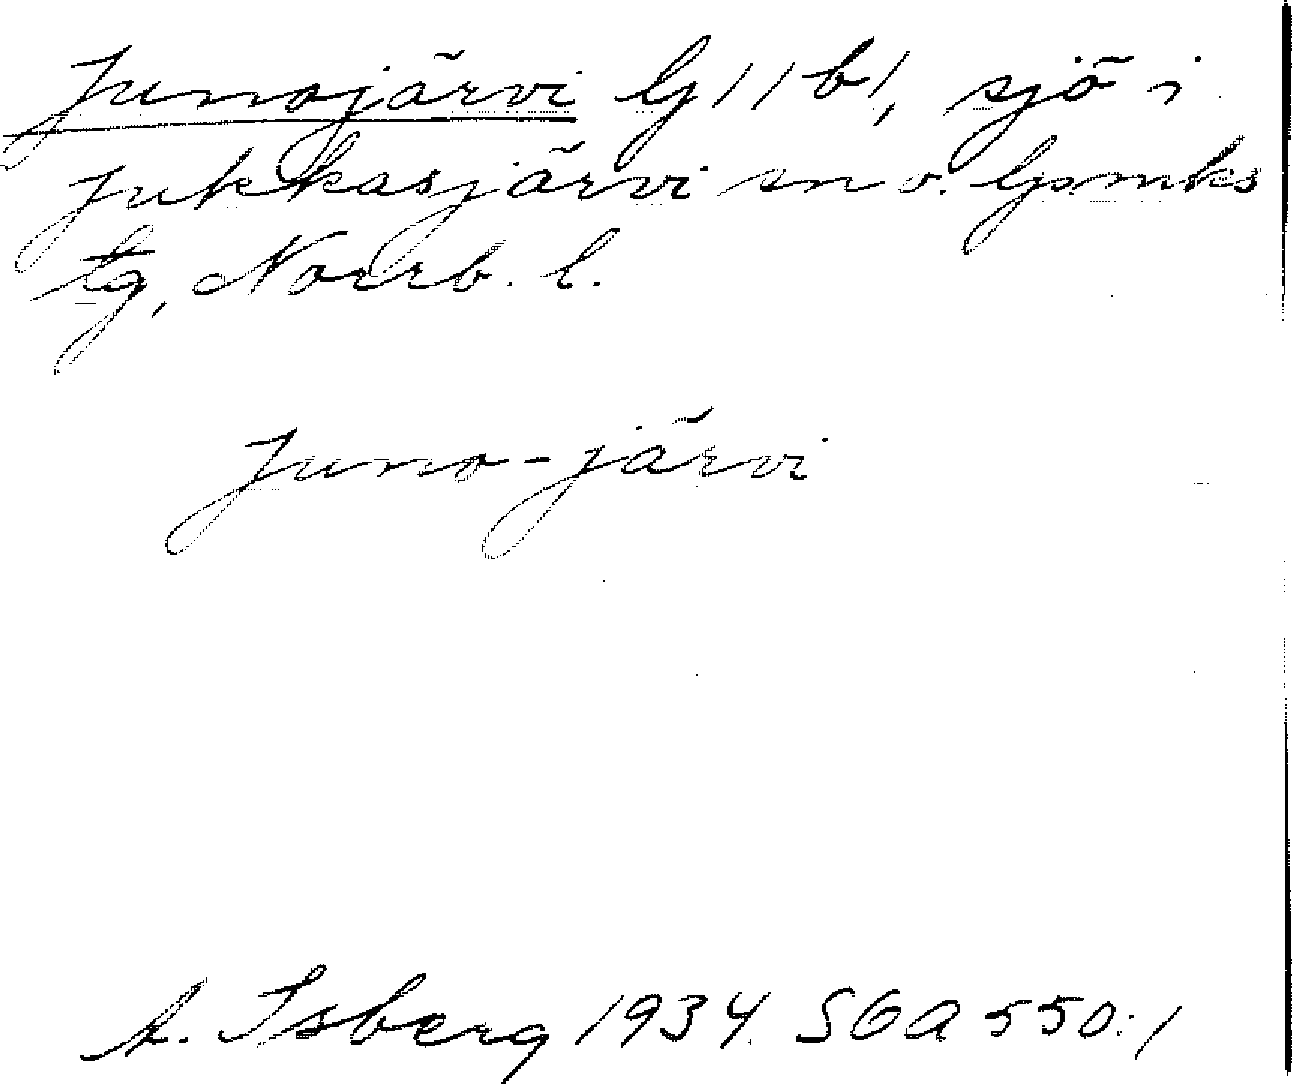 Junojärvi G11b1, sjö i
Jukkasjärvi sn o. lpmks
tg, Norrb. l.
Juno-järvi
A. Isberg 1934. SOA 550:1